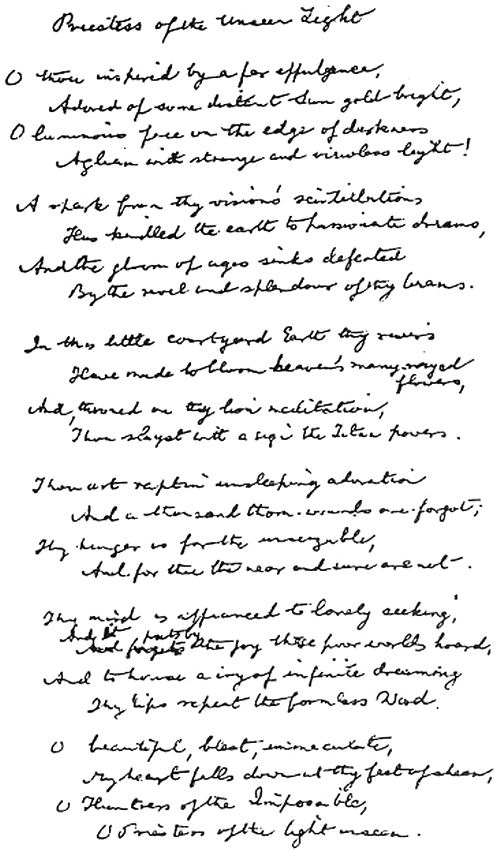 Priestess of the Unseen Light
O thou inspired by a far effulgence,
Adored of some distant Sun gold-bright,
O luminous face on the edge of darkness
Agleam with strange and viewless light!
A spark from thy vision's scintillations
Has kindled the earth to passionate dreams,
And the gloom of ages sinks defeated
By the revel and splendour of thy beams.
In this little courtyard Earth thy rivers
Have made to bloom heaven's many-rayed
flowers,
And, throned on thy lion meditation,
Thou slayest with a sign the Titan powers.
Thou art rapt in unsleeping adoration
And a thousand thorn-wounds are forgot;
Thy hunger is for the unseizable,
And for thee the near and sure are not.
Thy mind is affianced to lonely seeking,
And it puts by the joy these poor worlds hoard,
And to house a cry of infinite dreaming
Thy lips repeat the formless Word.
O beautiful, blest, immaculate,
My heart falls down at thy feet of sheen,
O Huntress of the Impossible,
O Priestess of the light unseen.